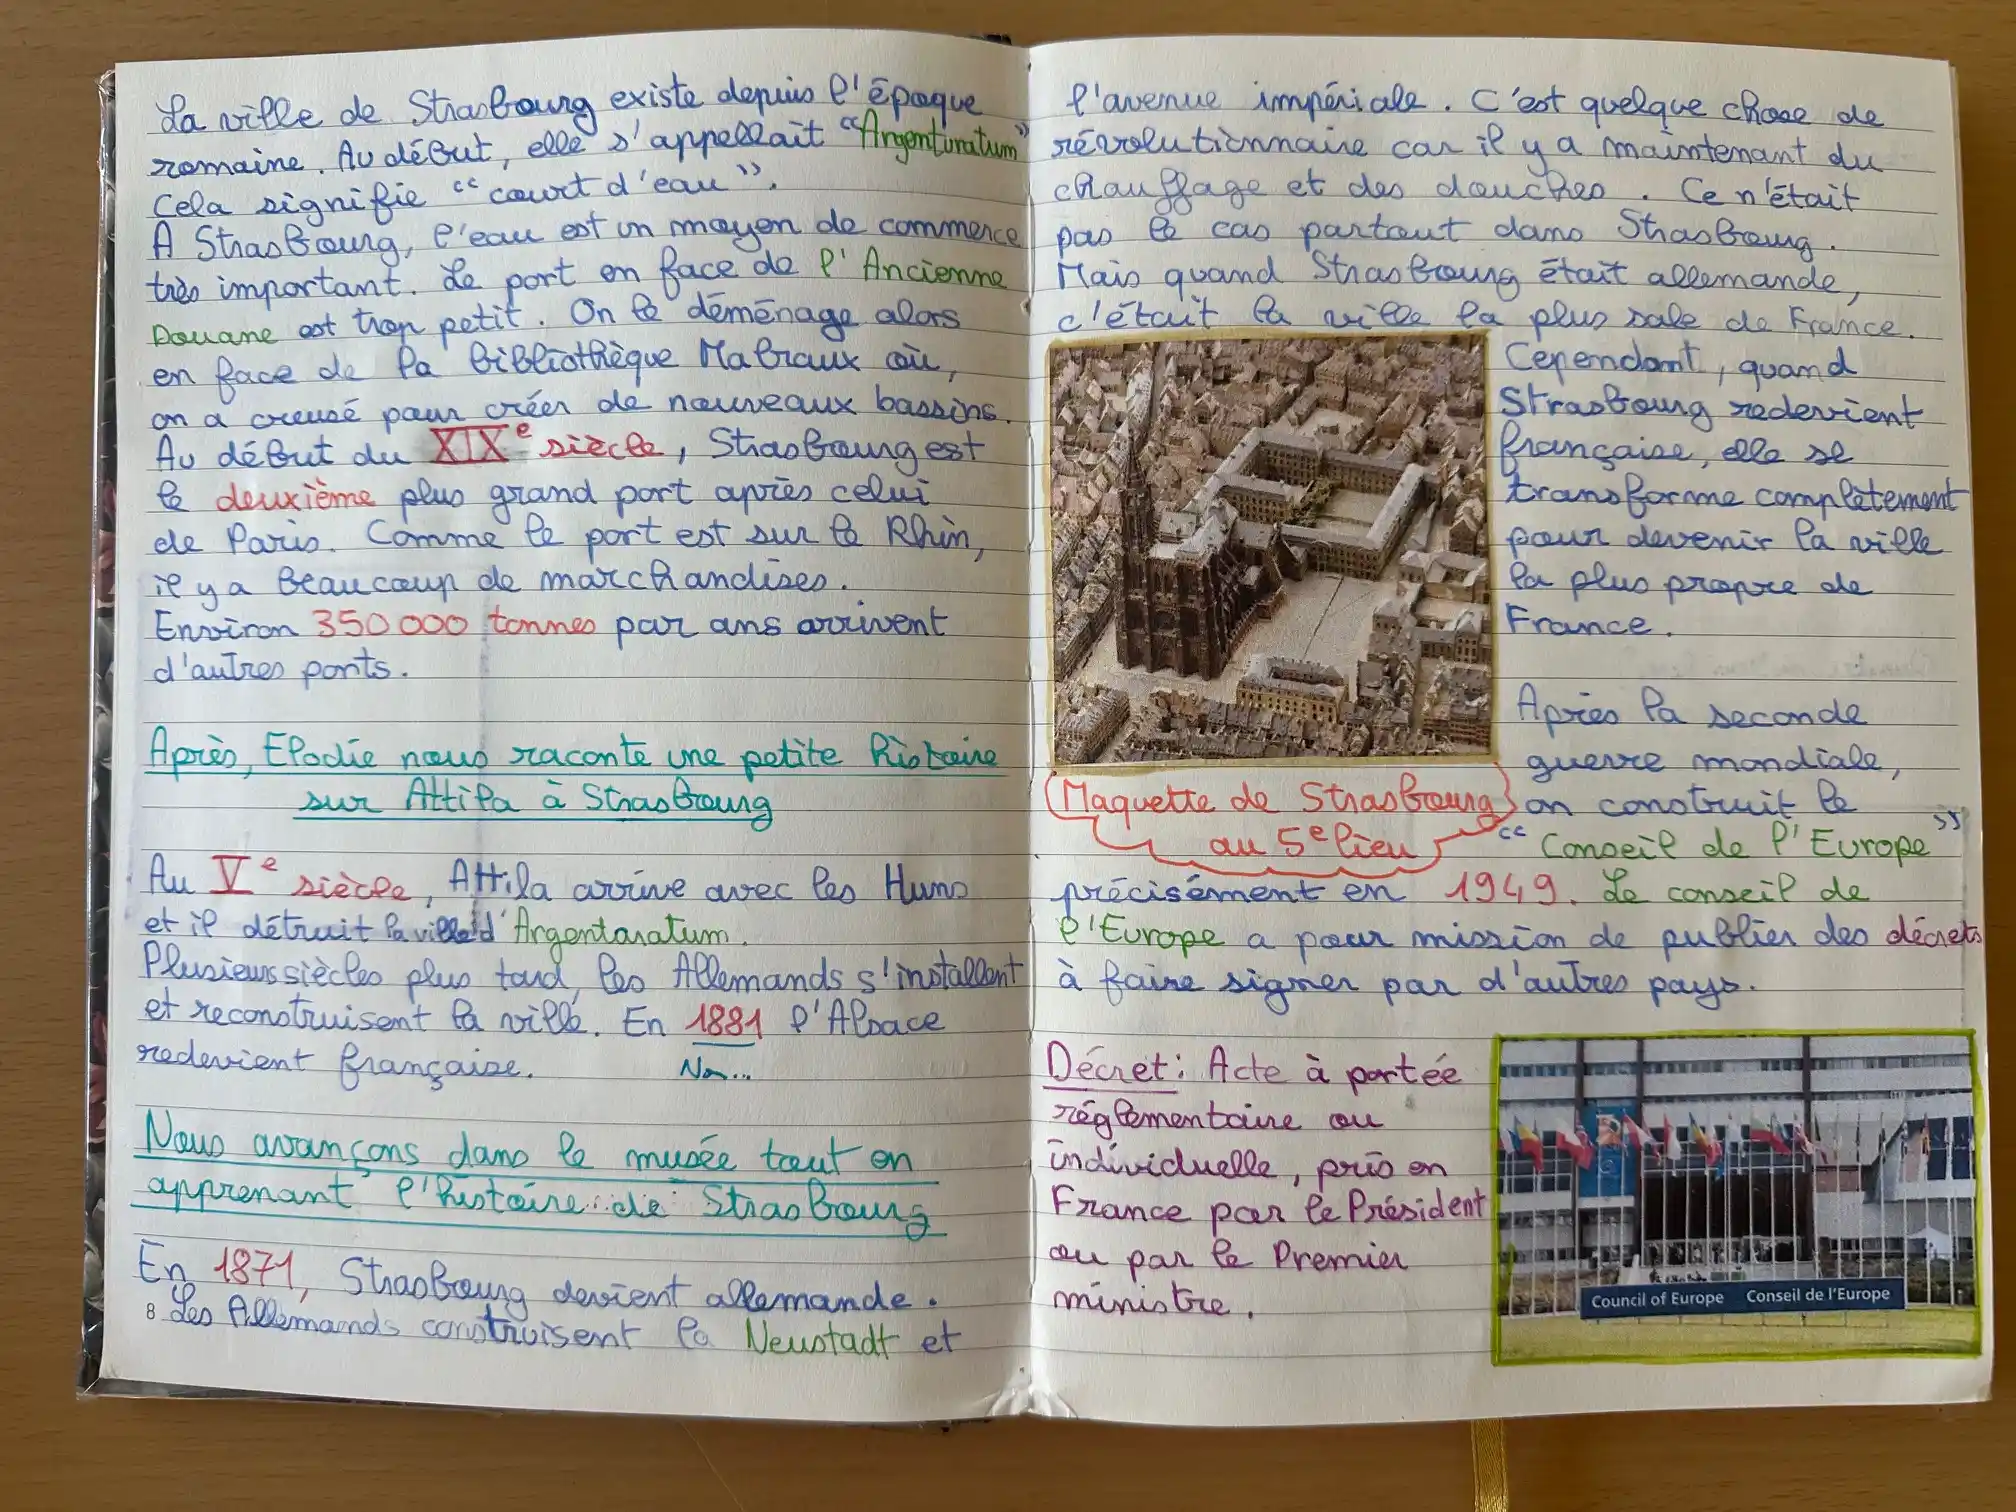 La ville de Strasbourg existe depuis l'époque
romaine. Au début, elle s'appellait "Argenturatum"
Cela signifie "court d'eau".
A Strasbourg, l'eau est un moyen de commerce
très important. Le port en face de l'Ancienne
Douane est trop petit. On le déménage alors
en face de la bibliothèque Malraux où,
on a creusé pour créer de nouveaux bassins.
Au début du XIXe siècle, Strasbourg est
le deuxième plus grand port après celui
de Paris. Comme le port est sur le Rhin,
il y a beaucoup de marchandises.
Environ 350 000 tonnes par ans arrivent
d'autres ports.
Après, Elodie nous raconte une petite histoire
sur Attila à Strasbourg
Au Ve siècle, Attila arrive avec les Huns
et il détruit la ville d'Argentaratum.
Plusieurs siècles plus tard, les Allemands s'installent
et reconstruisent la ville. En 1881 l'Alsace
redevient française. Non...
Nous avançons dans le musée tout en
apprenant l'histoire de Strasbourg
En 1871, Strasbourg devient allemande.
8 Les Allemands construisent la Neustadt et
l'avenue impériale. C'est quelque chose de
révolutionnaire car il y a maintenant du
chauffage et des douches. Ce n'était
pas le cas partout dans Strasbourg.
Mais quand Strasbourg était allemande,
c'était la ville la plus sale de France.
Cependant, quand
Strasbourg redevient
française, elle se
transforme complètement
pour devenir la ville
la plus propre de
France.
Maquette de Strasbourg
au 5e lieu
Après la seconde
guerre mondiale,
on construit le
"Conseil de l'Europe"
précisément en 1949. Le conseil de
l'Europe a pour mission de publier des décrets
à faire signer par d'autres pays.
Décret: Acte à portée
réglementaire ou
individuelle, pris en
France par le Président
ou par le Premier
ministre.
Council of Europe Conseil de l'Europe